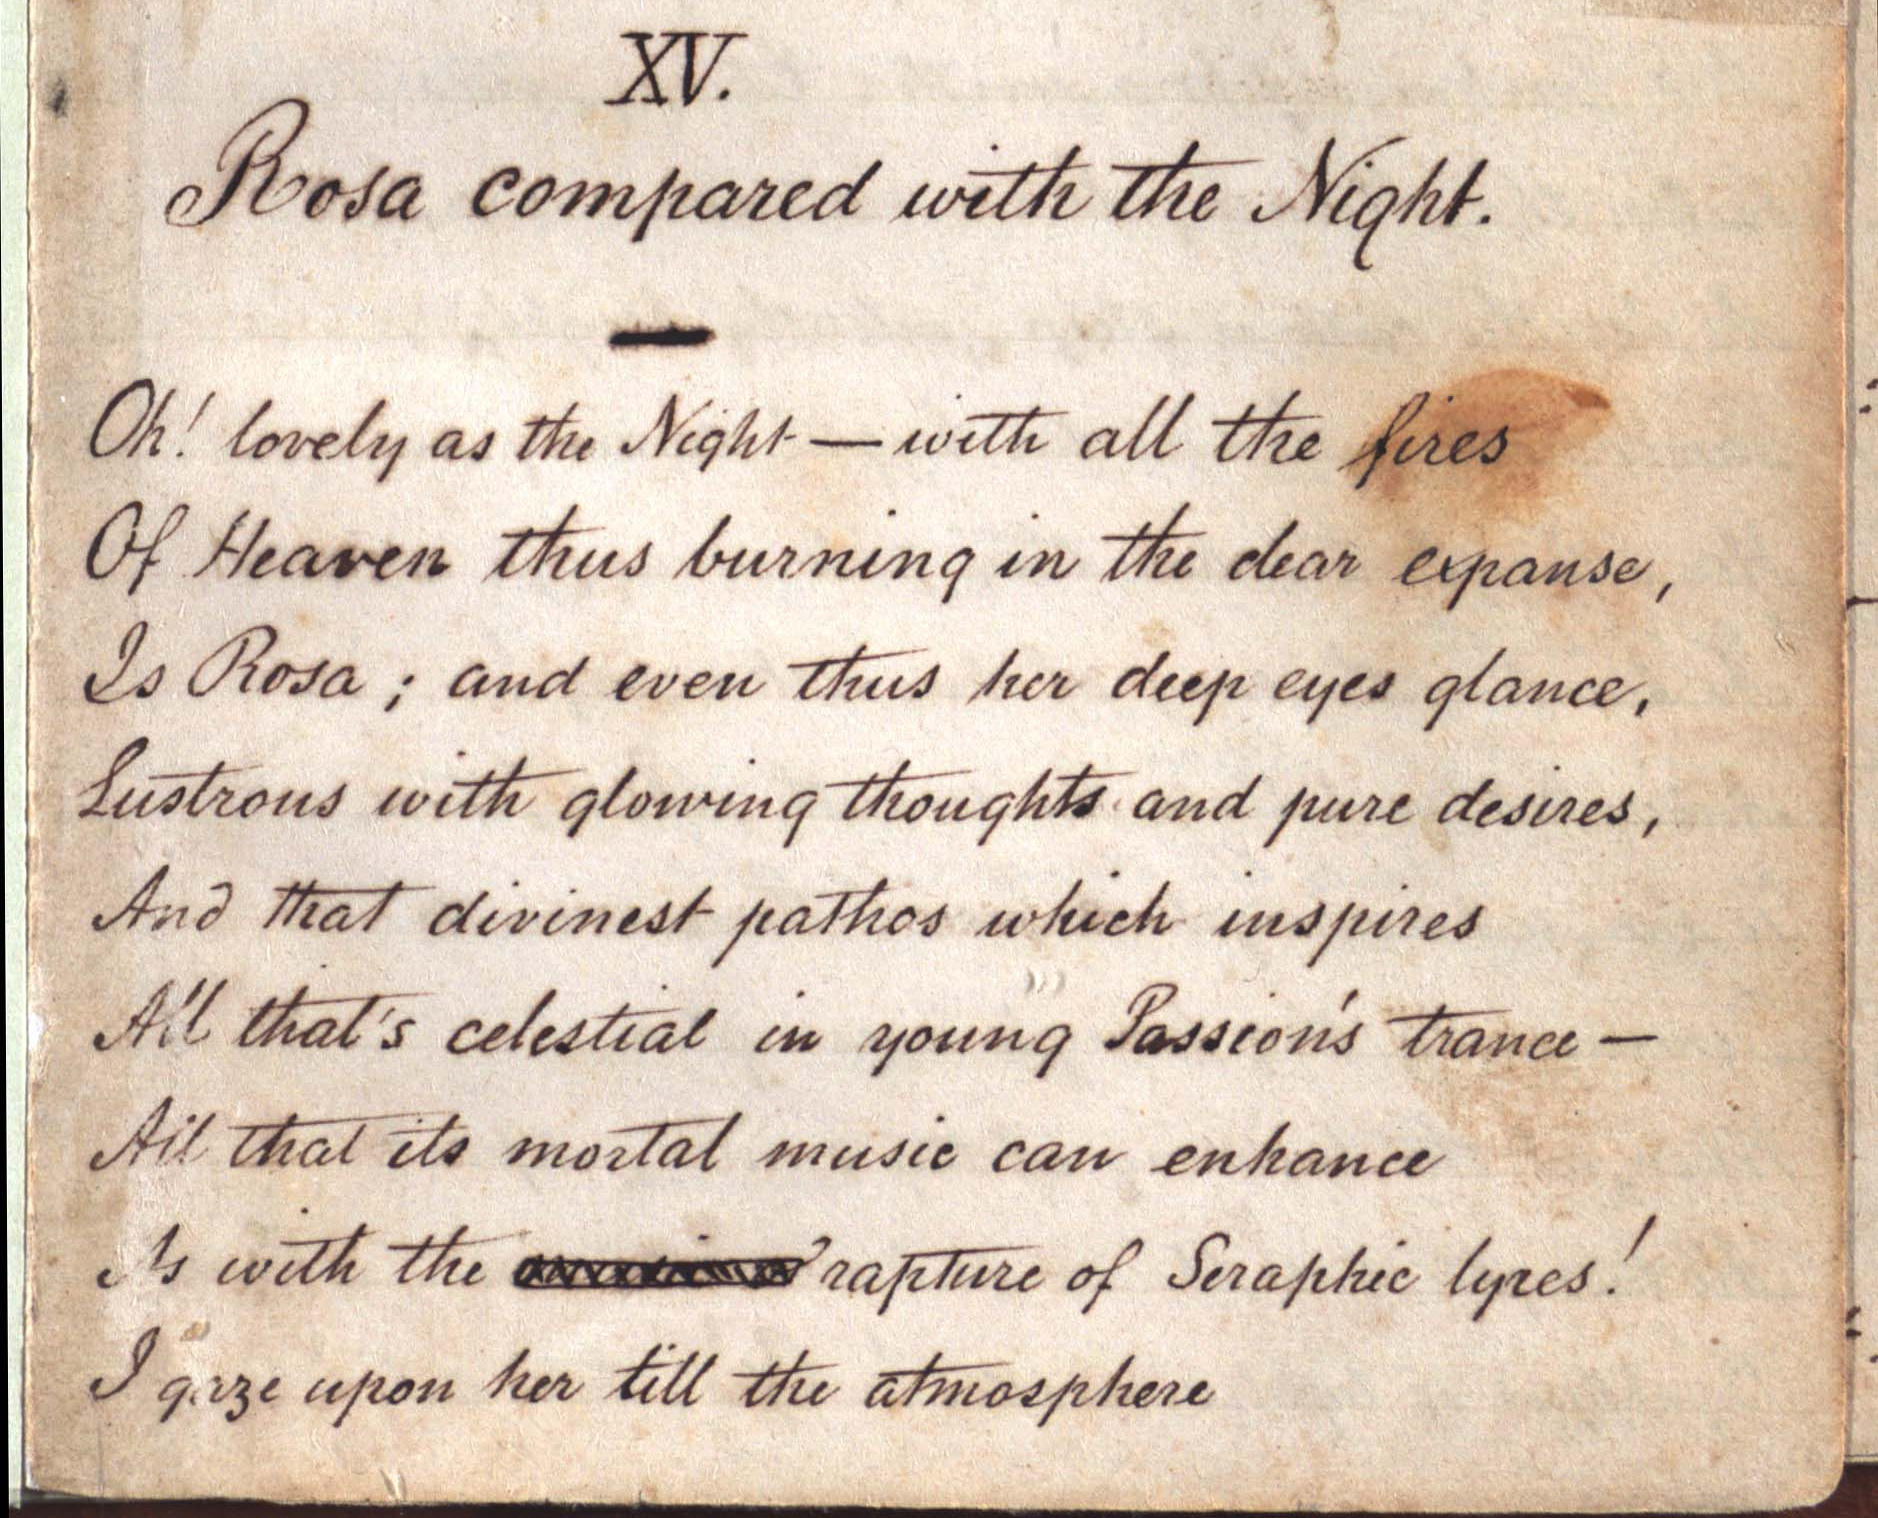 XV.
Rosa compared with the Night.
Oh! lovely as the Night — with all the fires
Of Heaven thus burning in the clear expanse,
Is Rosa; and even thus her deep eyes glance,
Lustrous with glowing thoughts and pure desires,
And that divinest pathos which inspires
All that's celestial in young Passion's trance —
All that its mortal music can enhance
As with the rapture of Seraphic lyres!
I gaze upon her till the atmosphere